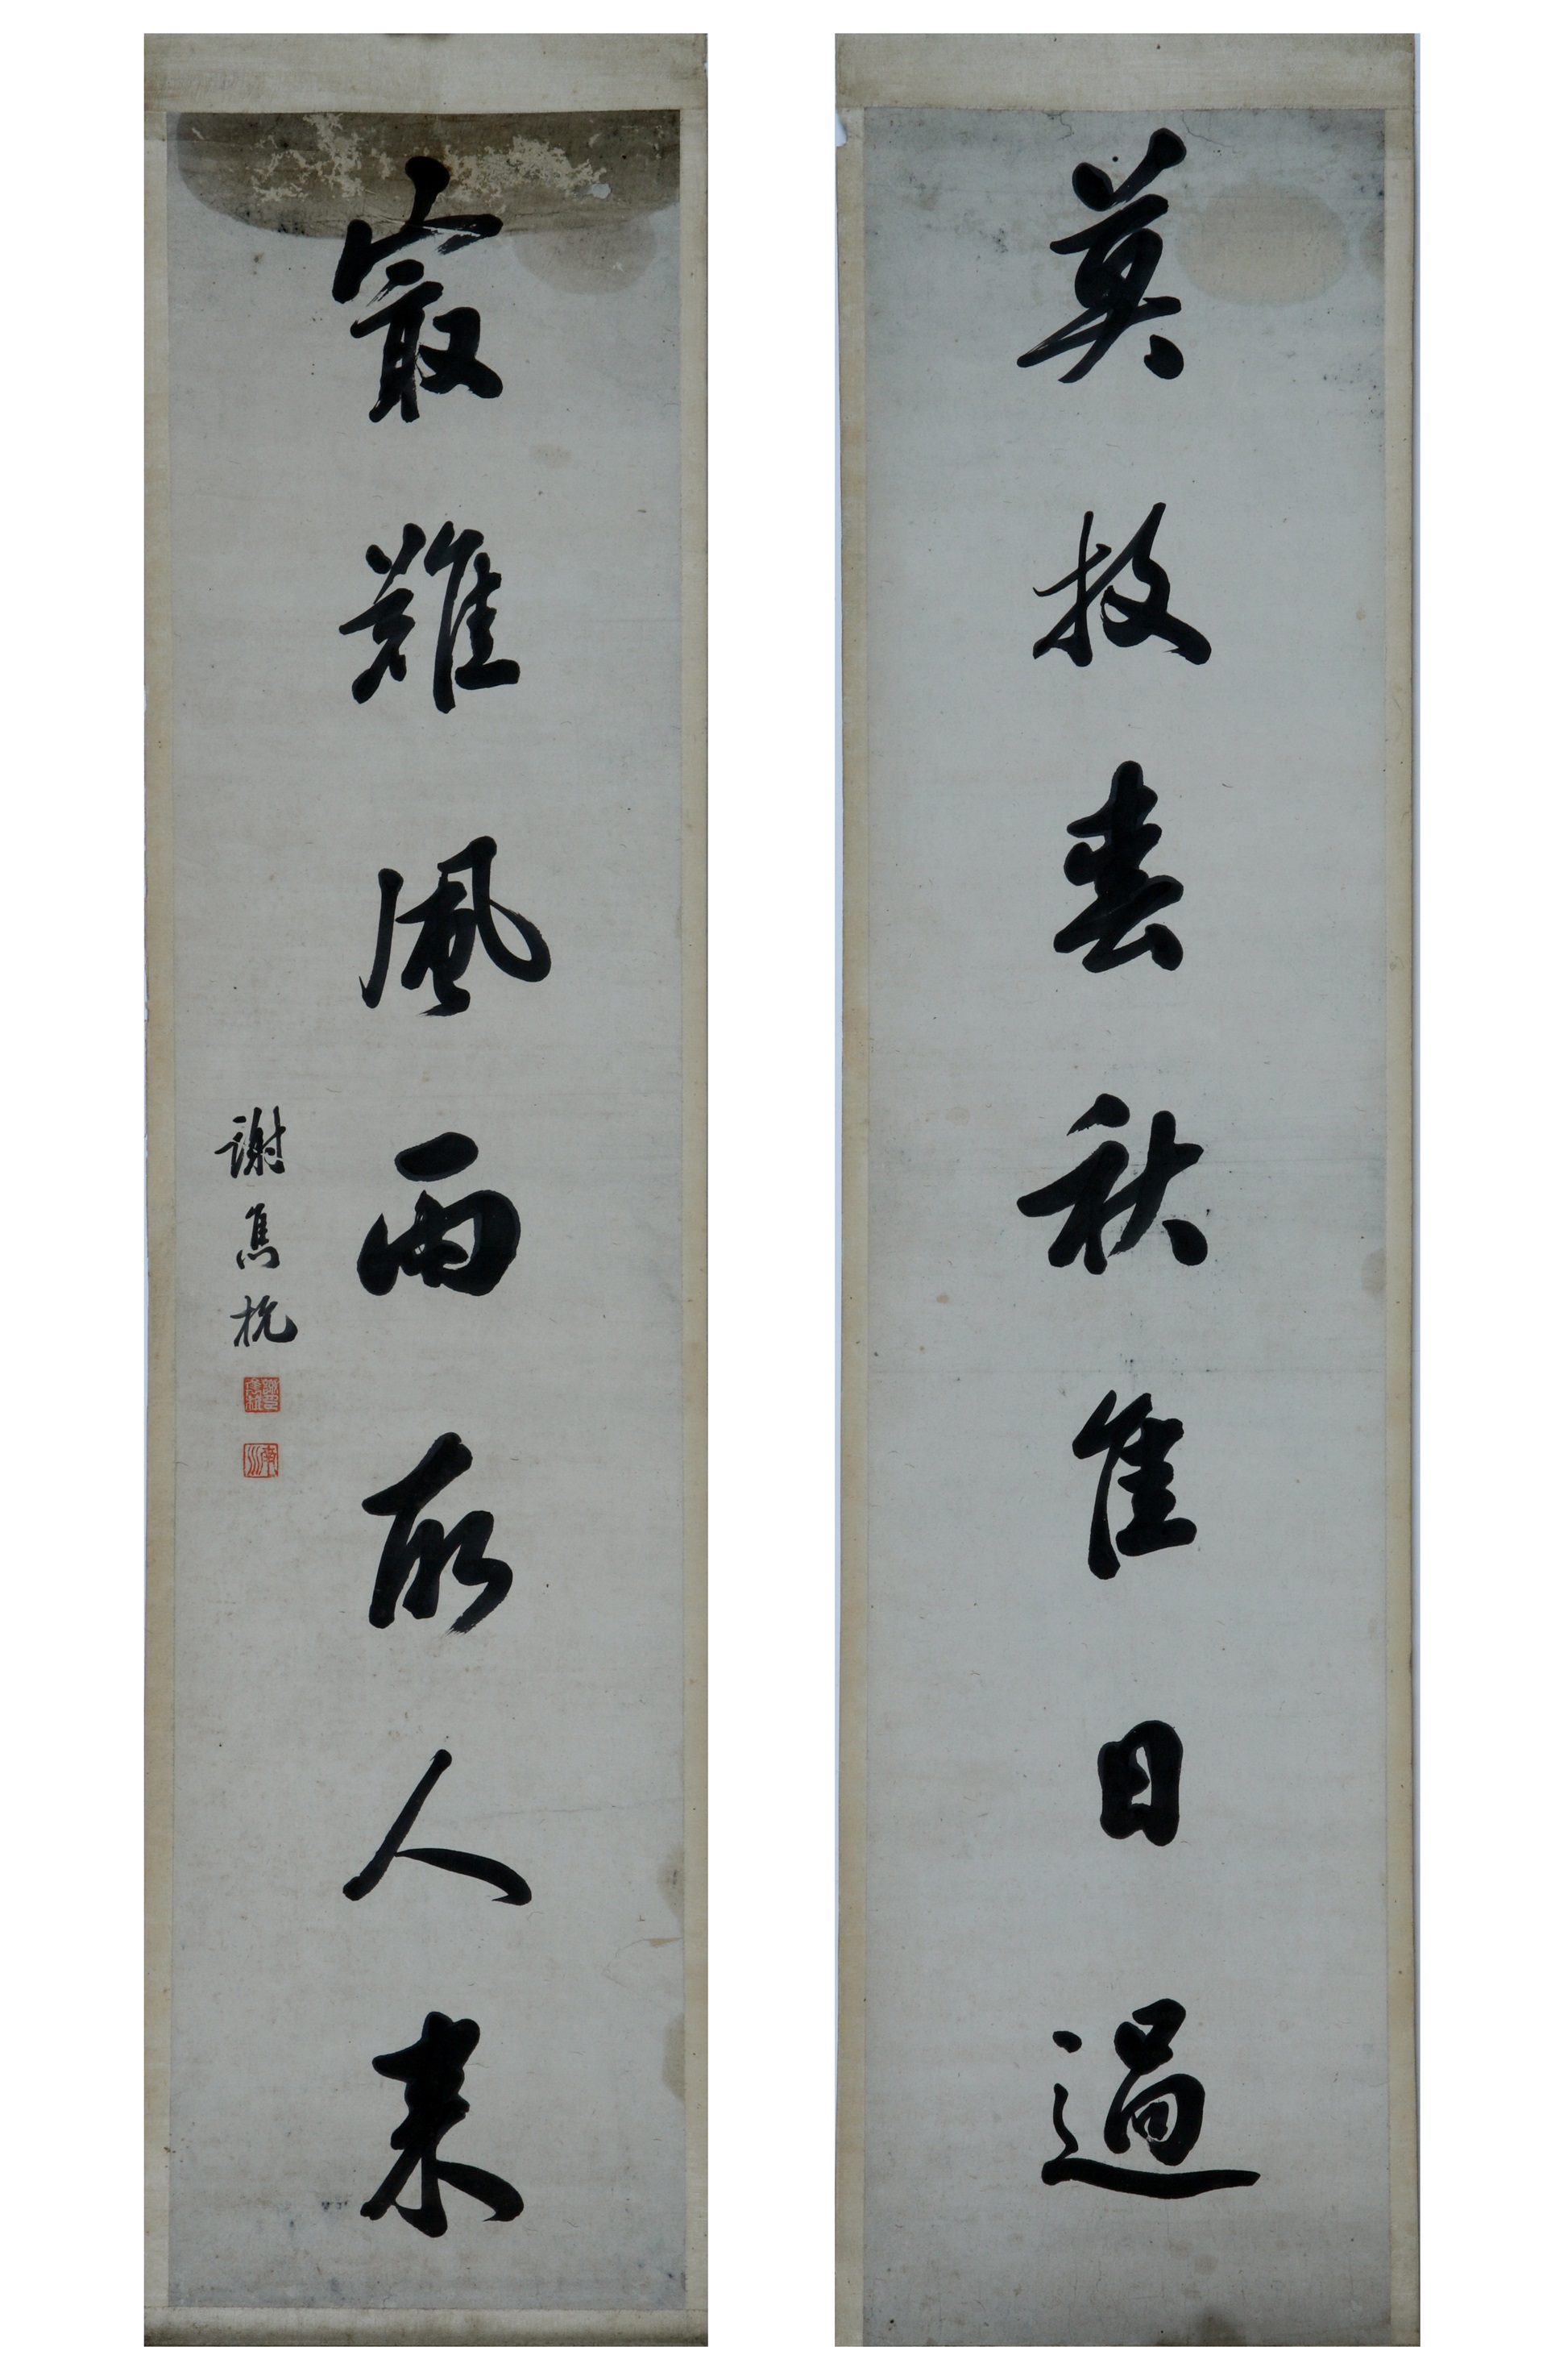 莫放春秋佳日過
最難風雨故人來
謝雋杭